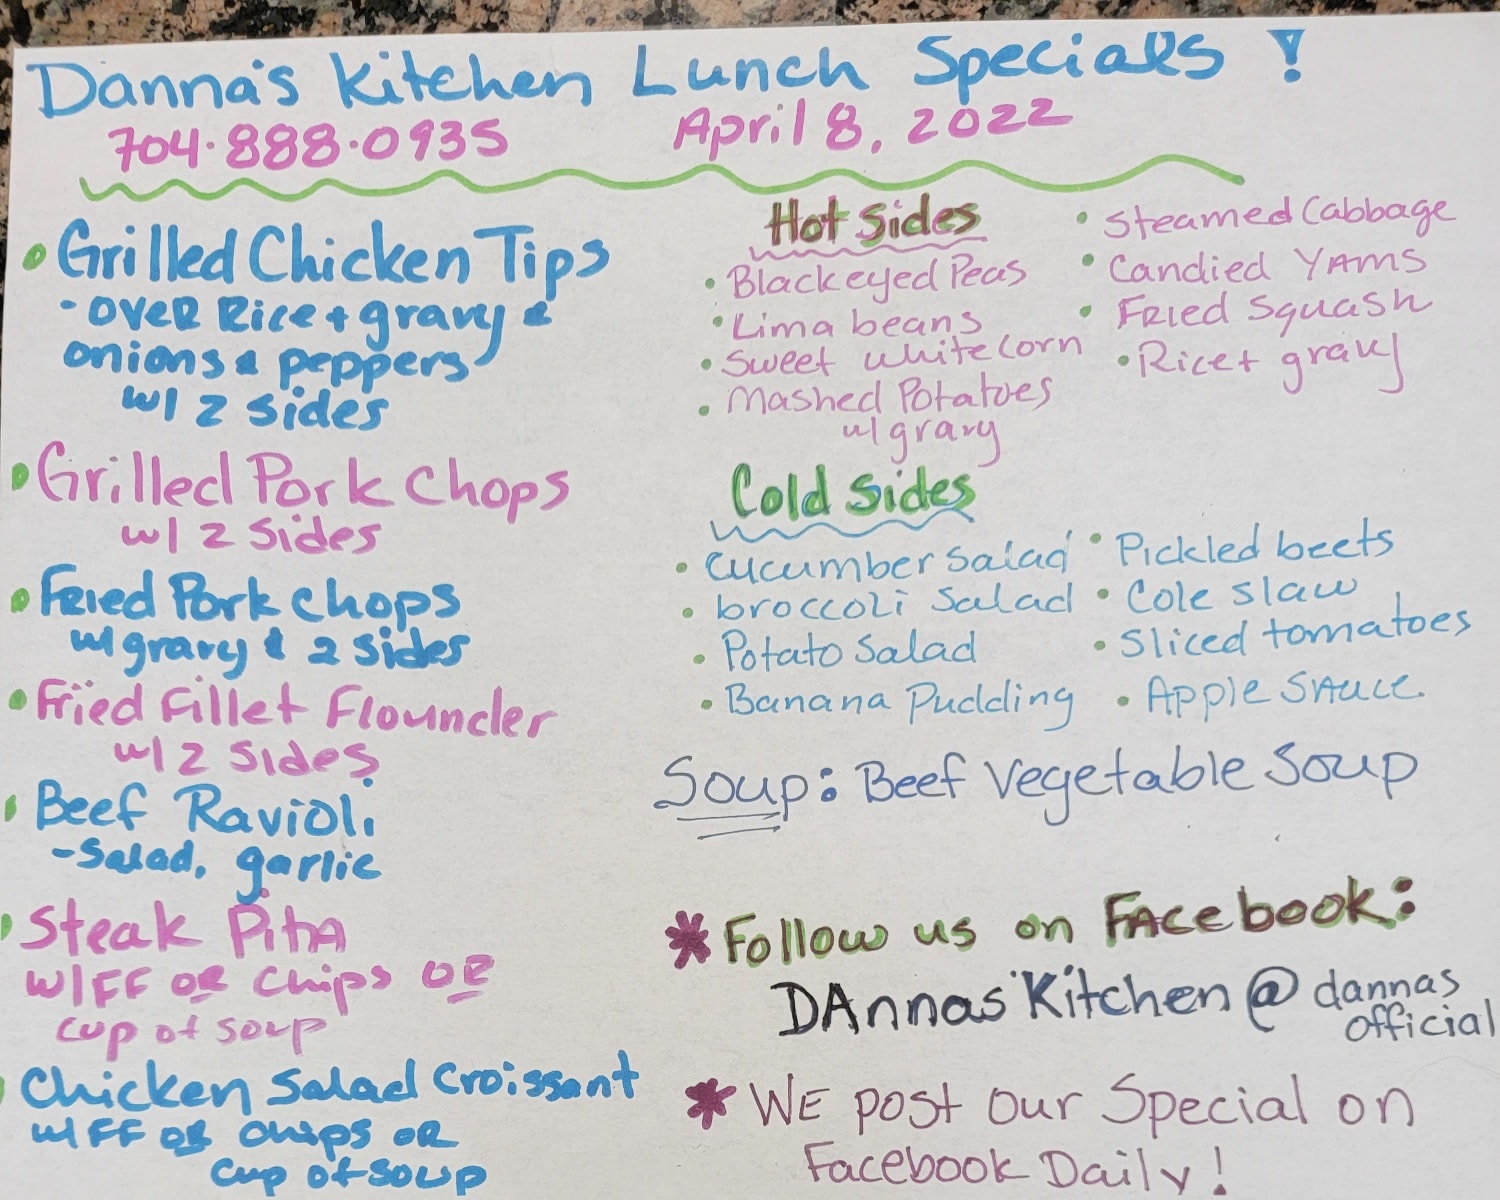 Danna's Kitchen Lunch Specials !
704·888·0935 April 8, 2022
• Grilled Chicken Tips
- OVER Rice + gravy &
onions & peppers
w/ 2 sides
• Grilled Pork Chops
w/ 2 Sides
• Fried Pork chops
w/ gravy & 2 sides
• Fried Fillet Flounder
w/ 2 Sides
• Beef Ravioli
- Salad, garlic
• Steak PitA
w/ FF OR Chips OR
cup of soup
Chicken Salad Croissant
w/ FF OR Chips OR
cup of soup
Hot Sides
• Blackeyed Peas
• Lima beans
• Sweet white Corn
• Mashed Potatoes
w/ gravy
• Steamed Cabbage
• Candied YAMS
• Fried Squash
• Rice + gravy
Cold Sides
• Cucumber Salad
• broccoli Salad
• Potato Salad
• Banana Pudding
• Pickled beets
• Cole slaw
• Sliced tomatoes
• Apple SAuce
Soup: Beef Vegetable Soup
* Follow us on FAcebook:
DAnnas Kitchen @ dannas
official
* WE post our Special on
Facebook Daily!